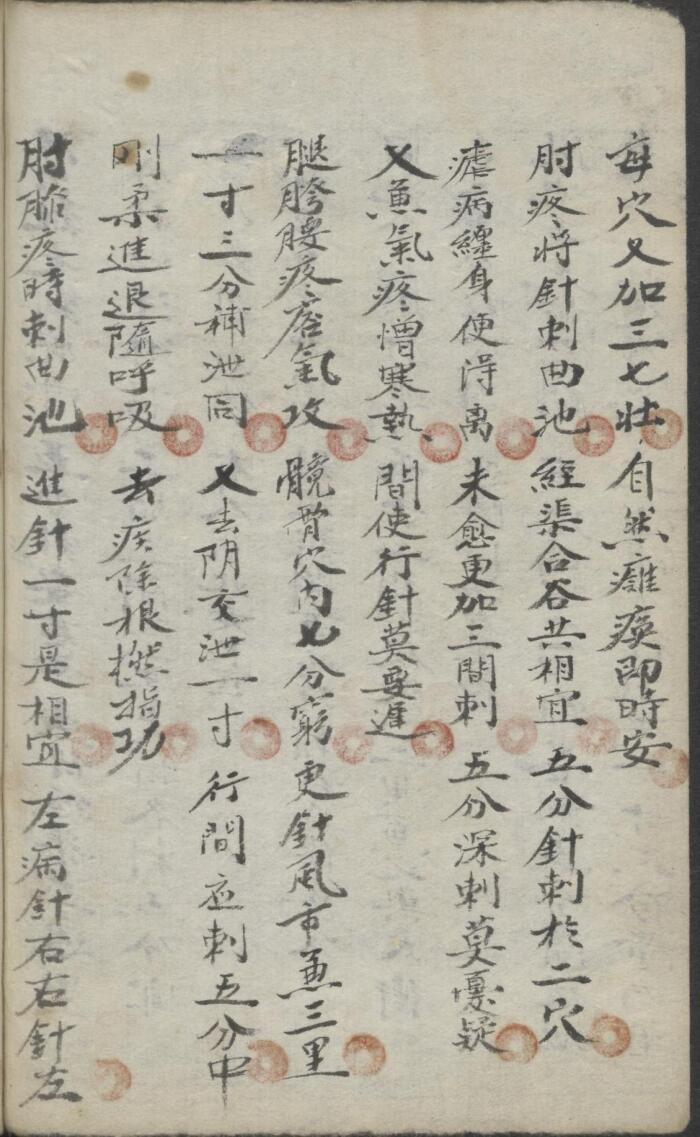 每穴又加三七壮 自然癱瘓即時安
肘疼将針刺曲池 經渠合谷共相宜 五分針刺扵二穴
瘧病纏身使得离 未愈更加三間刺 五分深刺莫憂疑
又蒹氣疼憎寒熱 間使行針莫要遲
腿胯腰疼痞氣攻 髖骨穴内七分窮 更針風市蒹三里
一寸三分補泄同 又去阴交泄一寸 行間应刺五分中
刚柔進退隨呼吸 去疾除根撚指功
肘膊疼時刺曲池 進針一寸是相宜 左病針右右針左